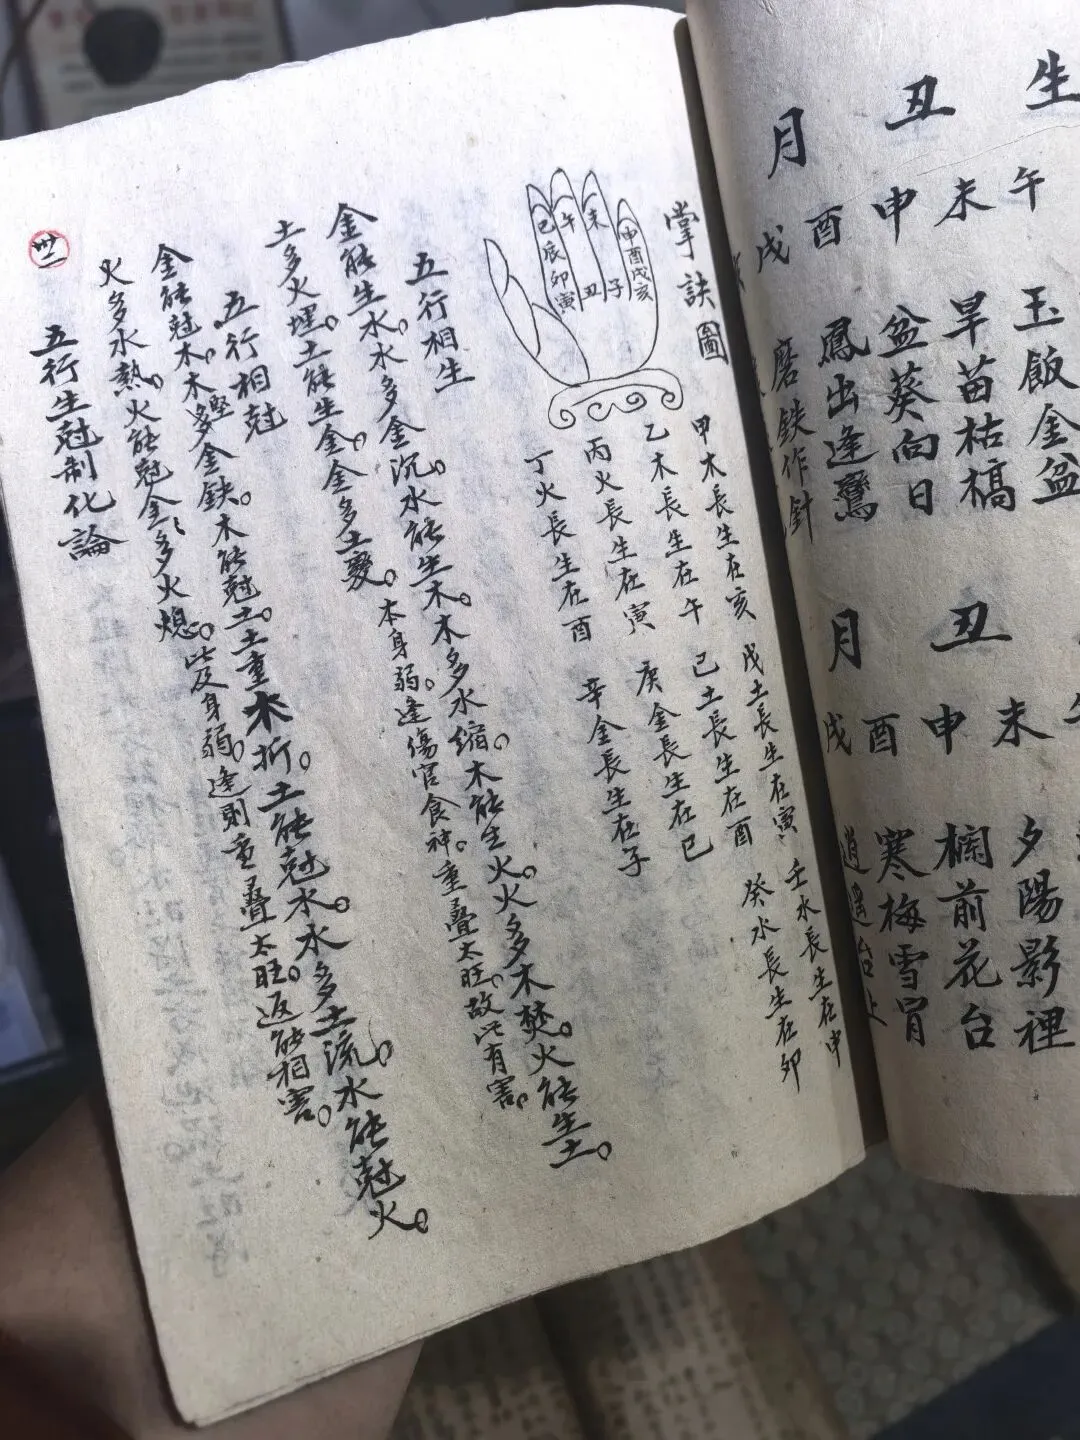 生
丑
月
午
未
申
酉
戌
玉飯金盆
旱苗枯槁
盆葵向日
鳳出逢鸞
磨鉄作針
丑
月
未
申
酉
戌
夕陽影裡
欄前花台
寒梅雪冐
逍遙台上
掌訣圖
巳 午 未 申
辰 酉
卯 戌
寅 丑 子 亥
甲木長生在亥 戊土長生在寅 壬水長生在申
乙木長生在午 己土長生在酉 癸水長生在卯
丙火長生在寅 庚金長生在巳
丁火長生在酉 辛金長生在子
五行相生
金能生水。水多金沉。水能生木。木多水缩。木能生火。火多木焚。火能生土。
土多火埋。土能生金。金多土變。本身弱。逢傷官食神。重疊太旺。故此有害。
五行相尅
金能尅木。木多金鈌。木能尅土。土重木折。土能尅水。水多土流。水能尅火。
堅
火多水熱。火能尅金。金多火熄。此及身弱。逢則重疊太旺。返能相害。
五行生尅制化論
卅二